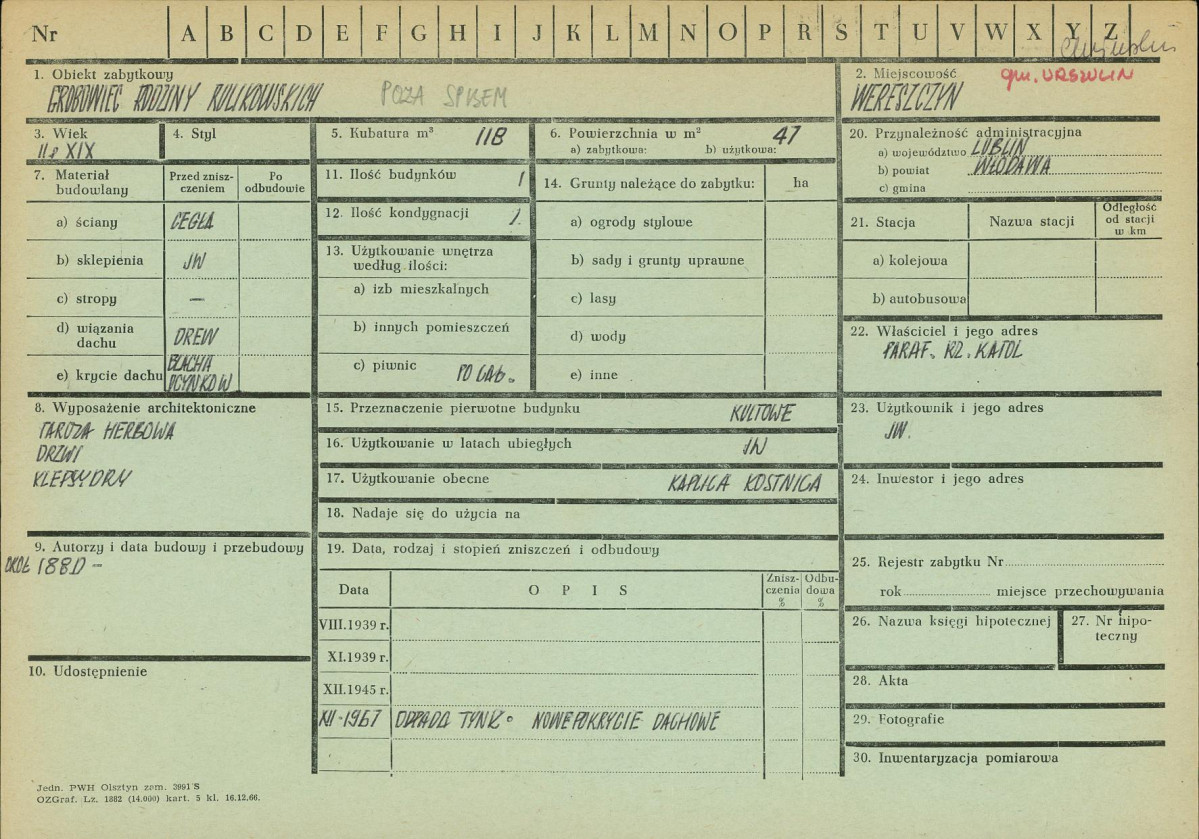 Nr A B C D E F G H I J K L M N O P R S T U V W X Y Z
1. Obiekt zabytkowy
GROBOWIEC RODZINY KULIKOWSKICH POZA SPISEM
2. Miejscowość gm. URSZULIN
WERESZCZYN
3. Wiek
II p XIX
4. Styl
5. Kubatura m³ 118
6. Powierzchnia w m² 47
a) zabytkowa: b) użytkowa:
7. Materiał budowlany
Przed zniszczeniem
Po odbudowie
a) ściany CEGŁA
b) sklepienia JW
c) stropy —
d) wiązania dachu DREW
e) krycie dachu BLACHA OCYNKOW
8. Wyposażenie architektoniczne
TARCZA HERBOWA
DRZWI
KLEPSYDRY
9. Autorzy i data budowy i przebudowy
OKOŁ 1880 -
10. Udostępnienie
11. Ilość budynków 1
12. Ilość kondygnacji 1
13. Użytkowanie wnętrza według ilości:
a) izb mieszkalnych
b) innych pomieszczeń
c) piwnic
14. Grunty należące do zabytku: ha
a) ogrody stylowe
b) sady i grunty uprawne
c) lasy
d) wody
e) inne
15. Przeznaczenie pierwotne budynku KULTOWE
16. Użytkowanie w latach ubiegłych JW
17. Użytkowanie obecne KAPLICA KOSTNICA
18. Nadaje się do użycia na
19. Data, rodzaj i stopień zniszczeń i odbudowy
Data OPIS Zniszczenia % Odbudowa %
VIII.1939 r.
XI.1939 r.
XII.1945 r.
XII-1967 ODPADŁ TYNK. NOWE POKRYCIE DACHOWE
20. Przynależność administracyjna
a) województwo LUBLIN
b) powiat WŁODAWA
c) gmina
21. Stacja Nazwa stacji Odległość od stacji w km
a) kolejowa
b) autobusowa
22. Właściciel i jego adres
PARAF. RZ. KATOL
23. Użytkownik i jego adres
JW.
24. Inwestor i jego adres
25. Rejestr zabytku Nr
rok miejsce przechowywania
26. Nazwa księgi hipotecznej
27. Nr hipoteczny
28. Akta
29. Fotografie
30. Inwentaryzacja pomiarowa
Jedn. PWH Olsztyn zam. 3991 S
OZGraf. Lz. 1882 (14.000) kart. 5 kl. 16.12.66.